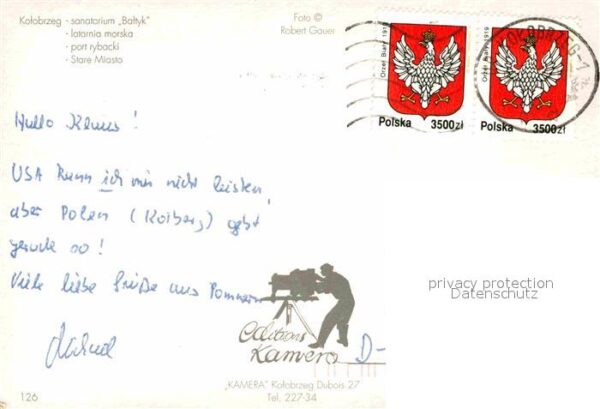 Kołobrzeg - sanatorium „Bałtyk"
- latarnia morska
- port rybacki
- Stare Miasto
Foto ©
Robert Gauer
Orzeł Biały 1919
Polska 3500zł
Orzeł Biały 1919
Polska 3500zł
KOŁOBRZEG-1
Hallo Klaus!
USA kann ich mir nicht leisten,
aber Polen (Kolberg) geht
gerade so!
Viele liebe Grüße aus Pommern
privacy protection
Datenschutz
Editions
Kamera
D-
126
„KAMERA" Kołobrzeg Dubois 27
Tel. 227-34